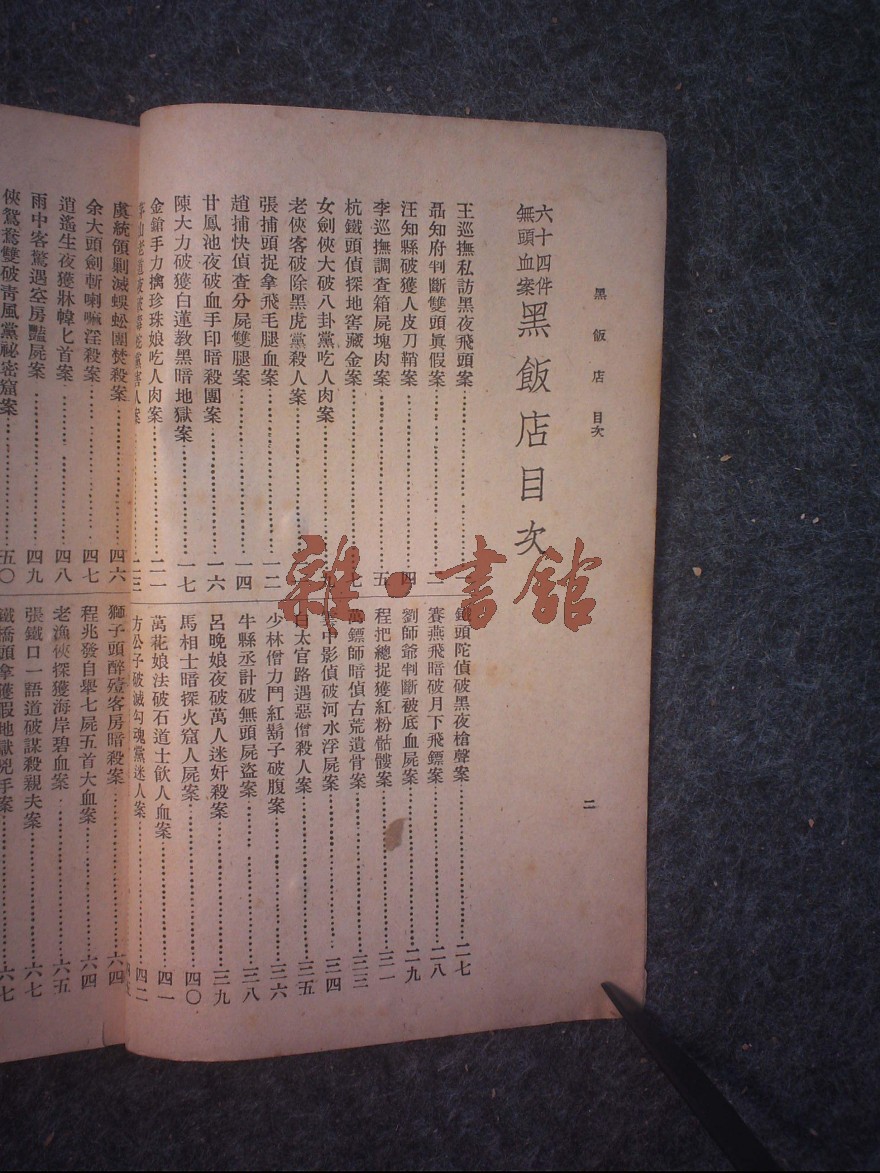 黑飯店 目次
二
六十四件
無頭血案
黑飯店目次
王巡撫私訪黑夜飛頭案
聶知府判斷雙頭眞假案 二
汪知縣破獲人皮刀鞘案 四
李巡撫調查箱屍塊肉案 五
杭鐵頭偵探地窖藏金案 七
女劍俠大破八卦黨吃人肉案 九
老俠客破除黑虎黨殺人案
張捕頭捉拿飛毛腿血案 一二
趙捕快偵查分屍雙腿案 一四
甘鳳池夜破血手印暗殺團案 一六
陳大力破獲白蓮敎黑暗地獄案 一七
金鎗手力擒珍珠娘吃人肉案 二一
二三
鐵頭陀偵破黑夜槍聲案 二七
賽燕飛暗破月下飛鏢案 二八
劉師爺判斷被底血屍案 二九
程把總捉獲紅粉骷髏案 三一
鏢師暗偵古荒遺骨案 三三
中影偵破河水浮屍案 三四
白太官路遇惡僧殺人案 三五
少林僧力鬥紅鬍子破腹案 三六
牛縣丞計破無頭屍盜案 三八
呂晚娘夜破萬人迷奸殺案 三九
馬相士暗探火窟人屍案 四〇
萬花娘法破石道士飮人血案 四一
方公子破滅勾魂黨迷人案 四二
虞統領剿滅蜈蚣團焚殺案 四六
余大頭劍斬喇嘛淫殺案 四七
逍遙生夜獲牀幃匕首案 四八
雨中客驚遇空房豔屍案 四九
俠鴛鴦雙破靑風黨祕密窟案 五〇
獅子頭醉殪客房暗殺案 六四
程兆發自舉七屍五首大血案 六四
老漁俠探獲海岸碧血案 六五
張鐵口一語道破謀殺親夫案 六七
鐵橋頭拿獲假地獄兇手案 六七
雜·書館